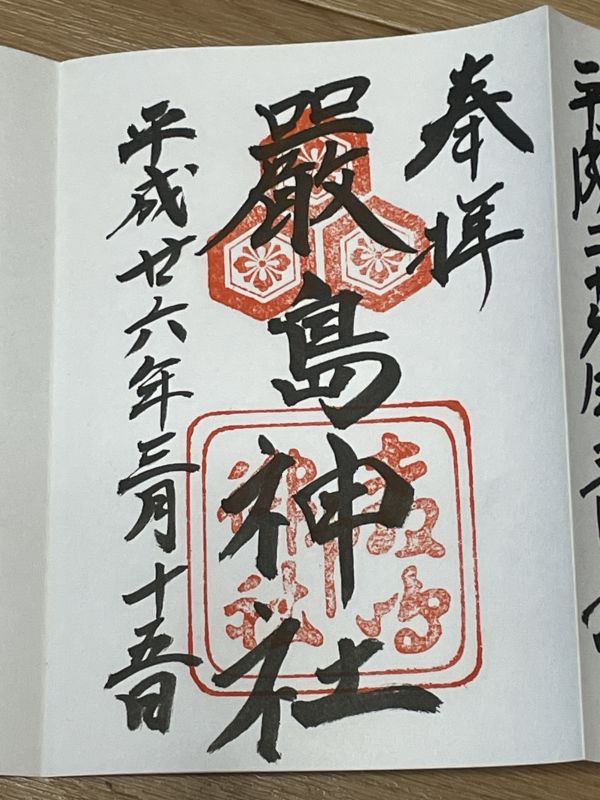 奉拝
嚴島神社
平成廿六年三月十五日